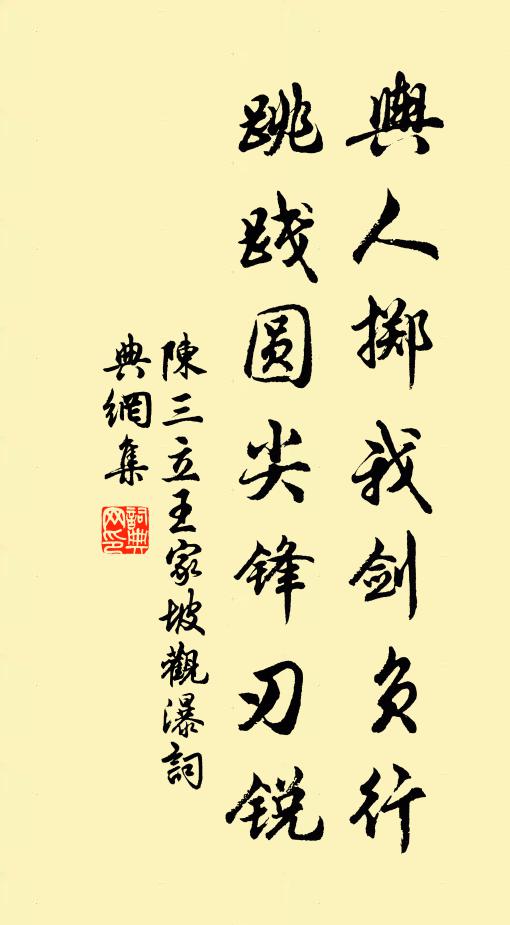 輿人掷我剑负行
跳践圆尖锋刃锐
陳三立王家坡觀瀑詞
典網集
詞典
网印